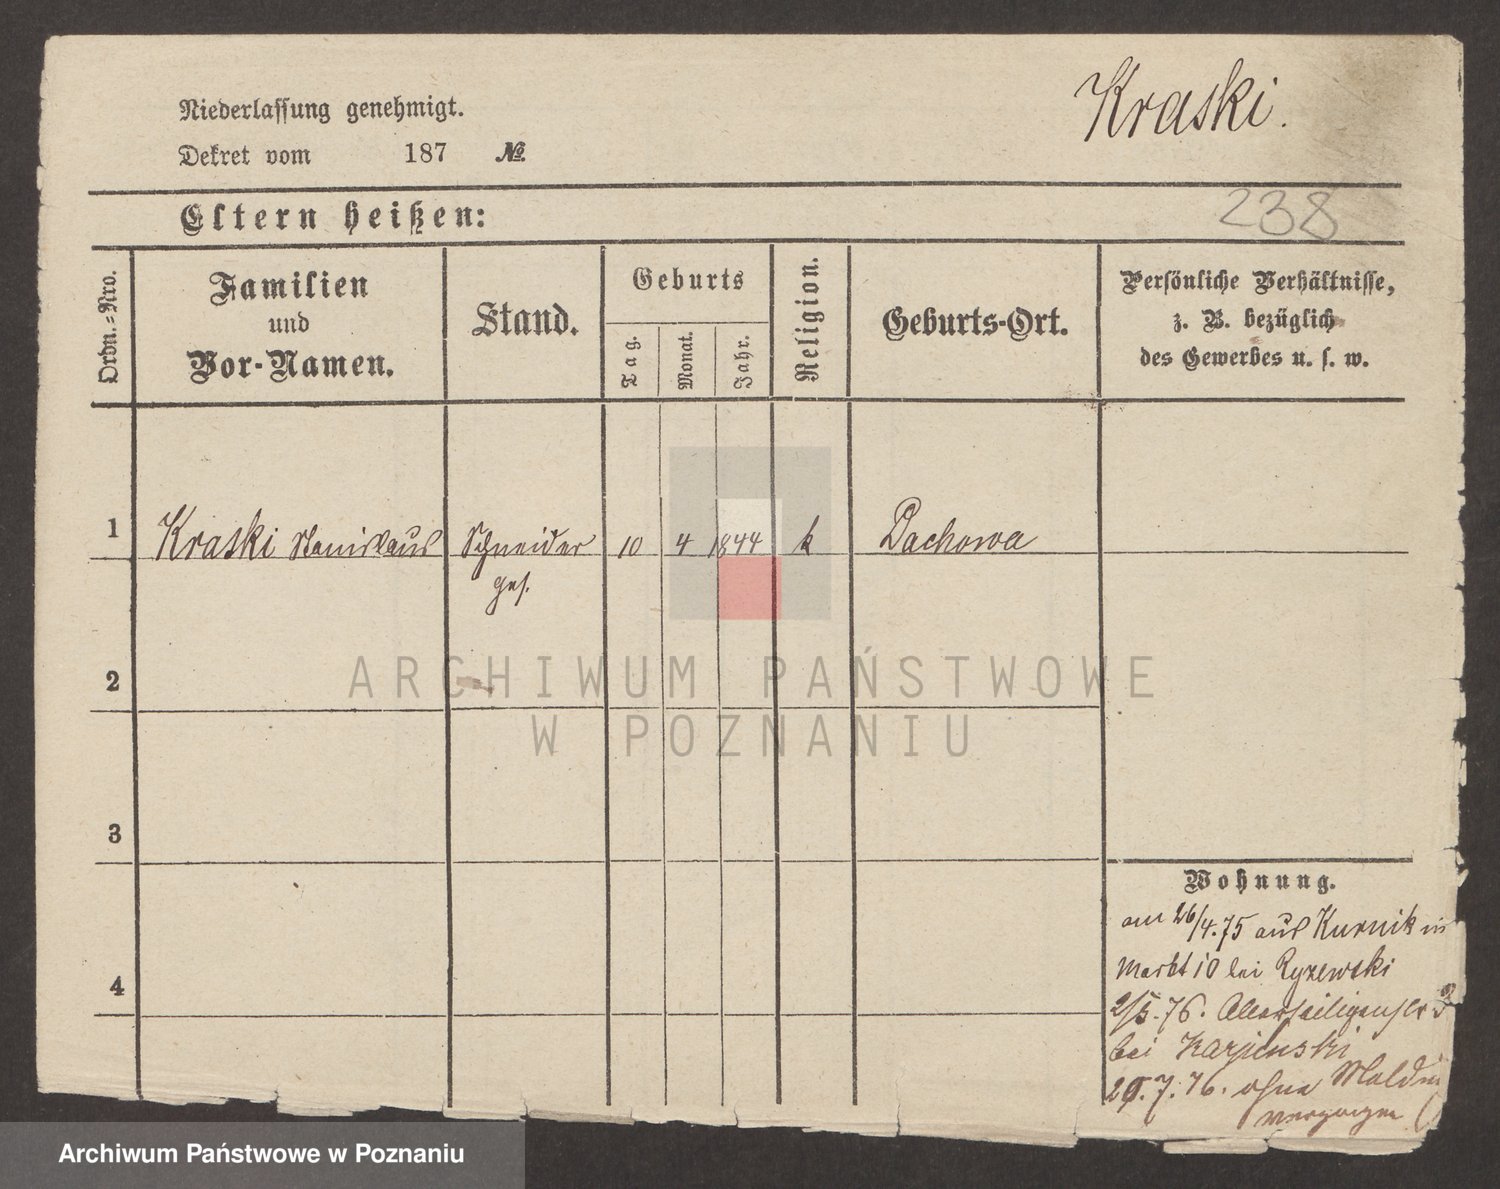 Kraski.
Niederlassung genehmigt.
Dekret vom 187 №
238
Eltern heißen:
Ordn.=Nro.
Familien
und
Vor-Namen.
Stand.
Geburts
Tag.
Monat.
Jahr.
Religion.
Geburts-Ort.
Persönliche Verhältnisse,
z. B. bezüglich
des Gewerbes u. s. w.
1 Kraski Stanislaus Schneider 10 4 1844 k Dachowa
ges.
2
3
4
Wohnung.
am 26/4.75 aus Kurnik in
Markt 10 bei Ryzewski
2/5.76. Allerheiligenstr 3
bei
29.7.76. ohne
ARCHIWUM PAŃSTWOWE
W POZNANIU
Archiwum Państwowe w Poznaniu